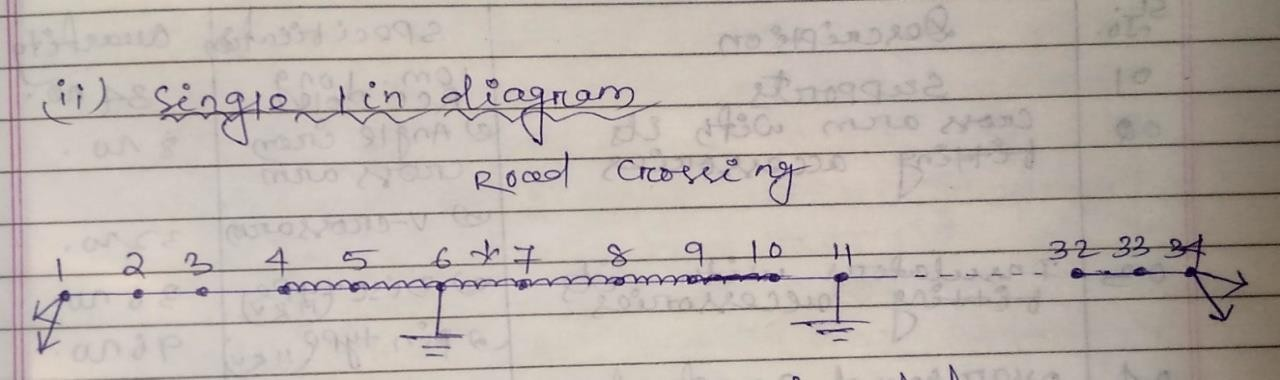 (ii) single lin diagram
Road Crossing
1 2 3 4 5 6 * 7 8 9 10 11 32 33 34